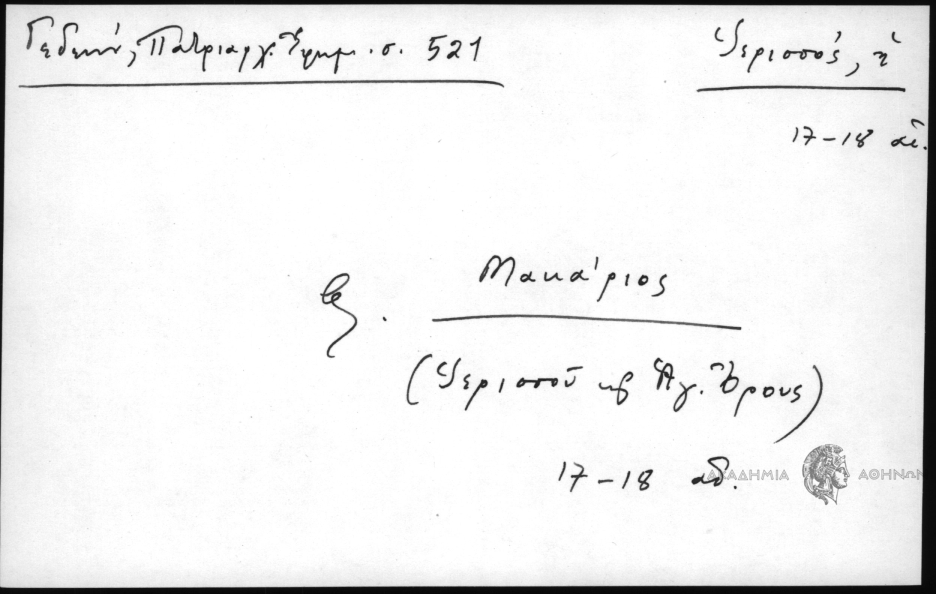 Γεδεών, Πατριαρχ. Ἐφημ. σ. 521
Ἱερισσός, ἡ
17-18 αἰ.
Μακάριος
(Ἱερισσοῦ κ Ἁγ. Ὄρους)
17-18 αἰ.
ΑΚΑΔΗΜΙΑ ΑΘΗΝΩΝ